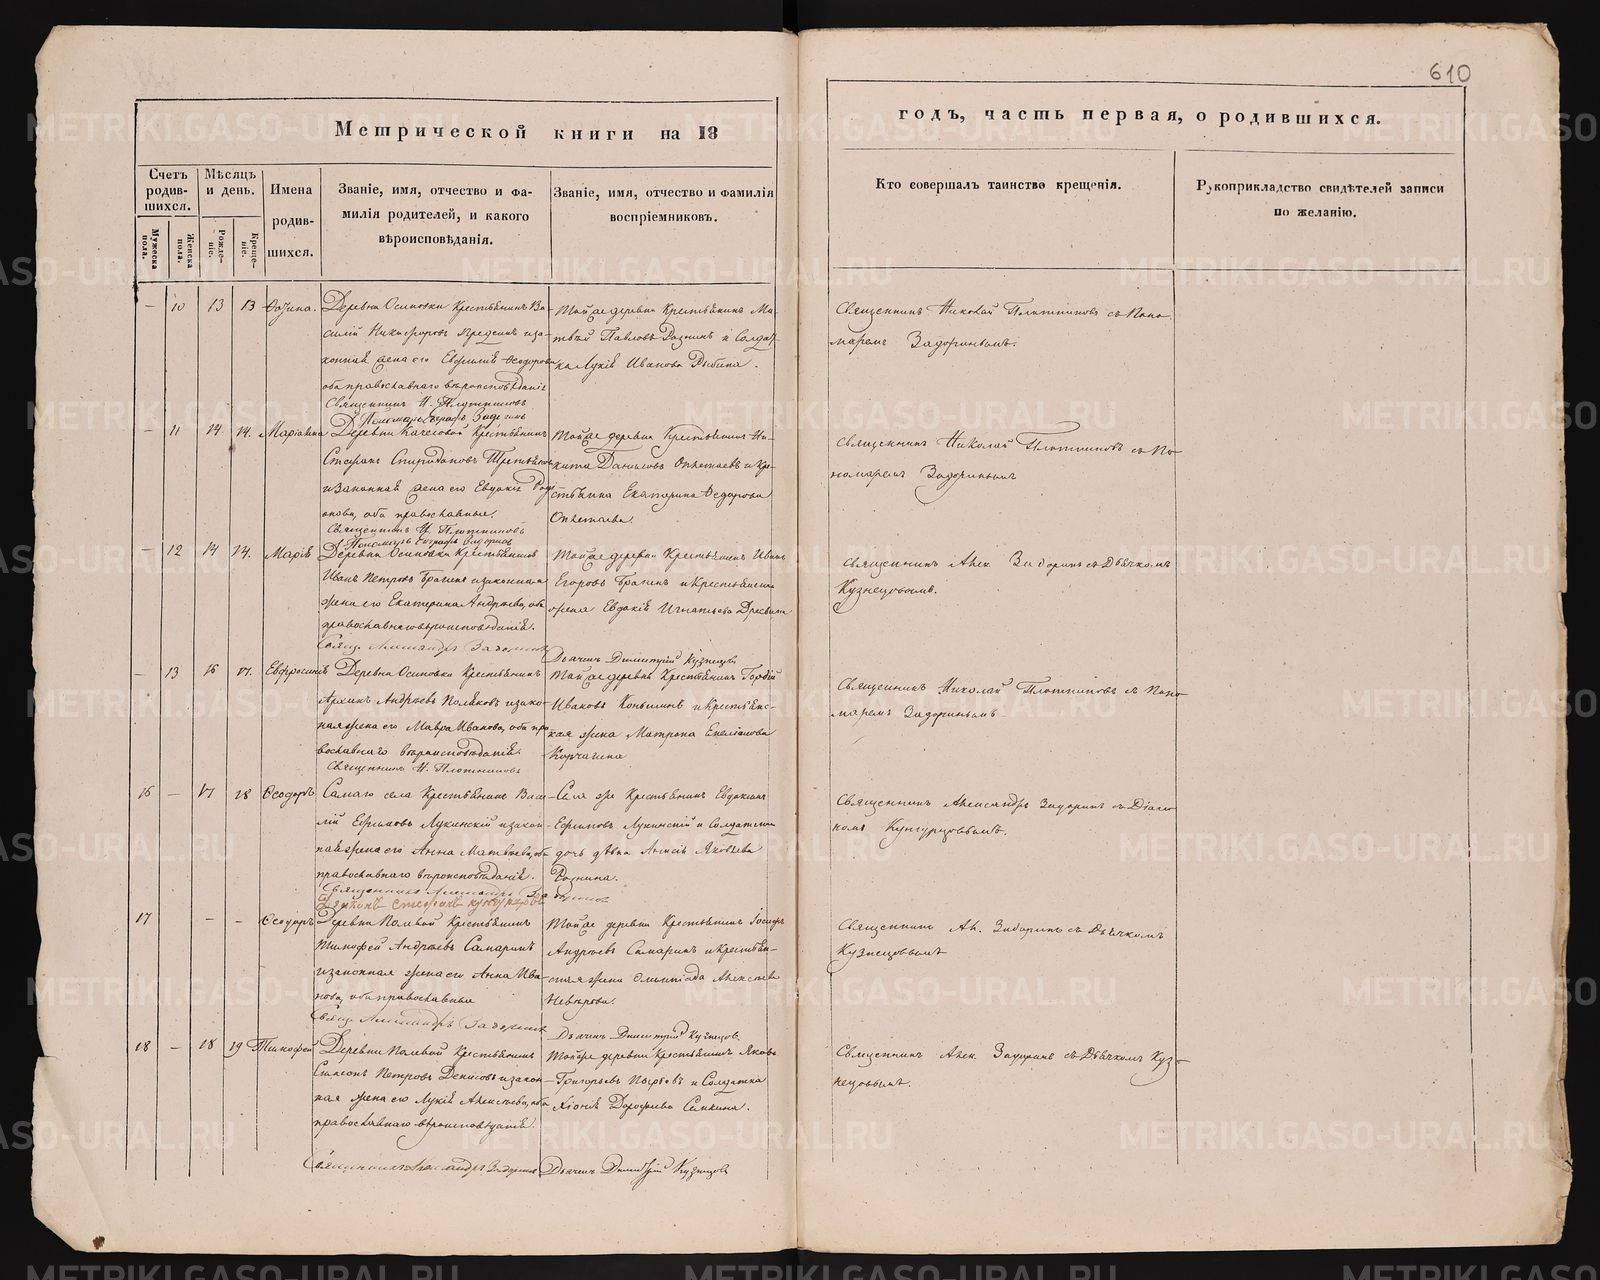 610
Метрической книги на 18
годъ, часть первая, о родившихся.
Счетъ родив-шихся.
Мѣсяцъ и день.
Имена родив-шихся.
Званіе, имя, отчество и фа-
милія родителей, и какого
вѣроисповѣданія.
Званіе, имя, отчество и фамилія
воспріемниковъ.
Кто совершалъ таинство крещенія.
Рукоприкладство свидѣтелей записи
по желанію.
Мужеска пола.
Женска пола.
Рожде-ніе.
Креще-ніе.
— 10 13 13
Деревни Осиновки Крестьянинъ Ва-
силій Никифоровъ и за-
конная жена его Евфимія Ѳеодорова
оба православнаго вѣроисповѣданія
Священникъ Н. Плотниковъ
Той же деревни Крестьянинъ Ма-
твѣй Павловъ и Солдат-
ка Лукія Иванова Рыбина.
Священникъ Николай Плотниковъ съ Поно-
маремъ Задоринымъ.
— 11 14 14. Маріамна
Деревни Крестьянинъ
Стефанъ Спиридоновъ Третьяковъ
и законная жена его Евдокія Роді-
онова, оба православные.
Священникъ Н. Плотниковъ
Той же деревни Крестьянинъ Ни-
кита Даниловъ и Кре-
стьянка Екатерина Ѳедорова
Священникъ Николай Плотниковъ съ По-
номаремъ Задоринымъ
— 12 14 14. Марія
Деревни Осиновки Крестьянинъ
Иванъ Петровъ Брагинъ и законная
жена его Екатерина Андреева, оба
православнаго вѣроисповѣданія.
Свящ. Александръ Задоринъ
Той же деревни Крестьянинъ Иванъ
Егоровъ Брагинъ и Крестьянская
жена Евдокія Игнатьева
Дьячекъ Димитрій Кузнецовъ
Священникъ Алек. Задоринъ съ Дьячкомъ
Кузнецовымъ.
— 13 16 17. Евфросинія
Деревни Осиновки Крестьянинъ
Архипъ Андреевъ Поляковъ и зако-
нная жена его Мавра Иванова, оба пра-
вославнаго вѣроисповѣданія.
Священникъ Н. Плотниковъ
Той же деревни Крестьянинъ Гордій
Ивановъ и Крестьянс-
кая жена Матрона Емеліанова
Корчагина
Священникъ Николай Плотниковъ съ Поно-
маремъ Задоринымъ
16 — 17 18 Ѳеодоръ
Самаго села Крестьянинъ Васи-
лій Ефимовъ Лукинскій и закон-
ная жена его Анна Матвѣева, оба
православнаго вѣроисповѣданія.
Священникъ Александръ Задоринъ
Діаконъ Стефанъ Кунгурцовъ
Села же Крестьянинъ Евдокимъ
Ефимовъ Лукинскій и Солдатская
дочь дѣвка Анисія Яковлева
Священникъ Александръ Задоринъ съ Діако-
номъ Кунгурцовымъ.
17 — — Ѳеодоръ
Деревни Полевой Крестьянинъ
Тимофей Андреевъ Самаринъ
и законная жена его Анна Ива-
нова, оба православные
Свящ. Александръ Задоринъ
Той же деревни Крестьянинъ Іосифъ
Андреевъ Самаринъ и Крестьян-
ская жена Олимпіада Алексѣева
Невѣрова.
Дьячекъ Димитрій Кузнецовъ
Священникъ Ал. Задоринъ съ Дьячкомъ
Кузнецовымъ
18 — 18 19 Тимофей
Деревни Полевой Крестьянинъ
Симеонъ Петровъ Денисовъ и закон-
ная жена его Лукія Алексѣева, оба
православнаго вѣроисповѣданія.
Священникъ Александръ Задоринъ
Той же деревни Крестьянинъ Яковъ
Григорьевъ и Солдатка
Хіонія Дорофеева Семкина.
Дьячекъ Димитрій Кузнецовъ
Священникъ Алек. Задоринъ съ Дьячкомъ Куз-
нецовымъ.
METRIKI.GASO-URAL.RU